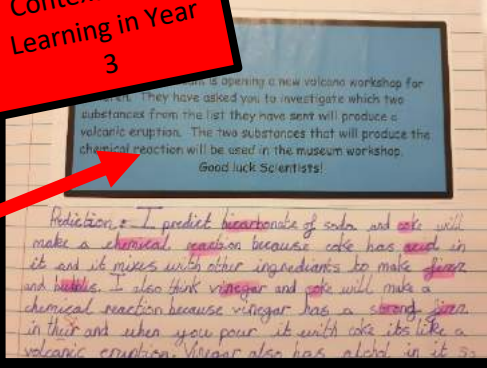 Learning in Year
3
is opening a new volcano workshop for
They have asked you to investigate which two
substances from the list they have sent will produce a
volcanic eruption. The two substances that will produce the
chemical reaction will be used in the museum workshop.
Good luck Scientists!
Prediction: I predict bicarbonate of soda and coke will
make a chemical reaction because coke has acid in
it and it mixes with other ingrediants to make fizz
and bubbles. I also think vinegar and coke will make a
chemical reaction because vinegar has a strong fizz
in their and when you pour it with coke its like a
volcanic eruption. Vinegar also has alchol in it so